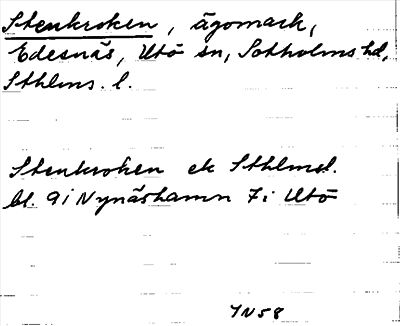 Stenkroken, ägomark,
Edesnäs, Utö sn, Sotholms hd,
Sthlms. l.
Stenkroken ek Sthlmsl.
bl. 9i Nynäshamn 7i Utö
YN58